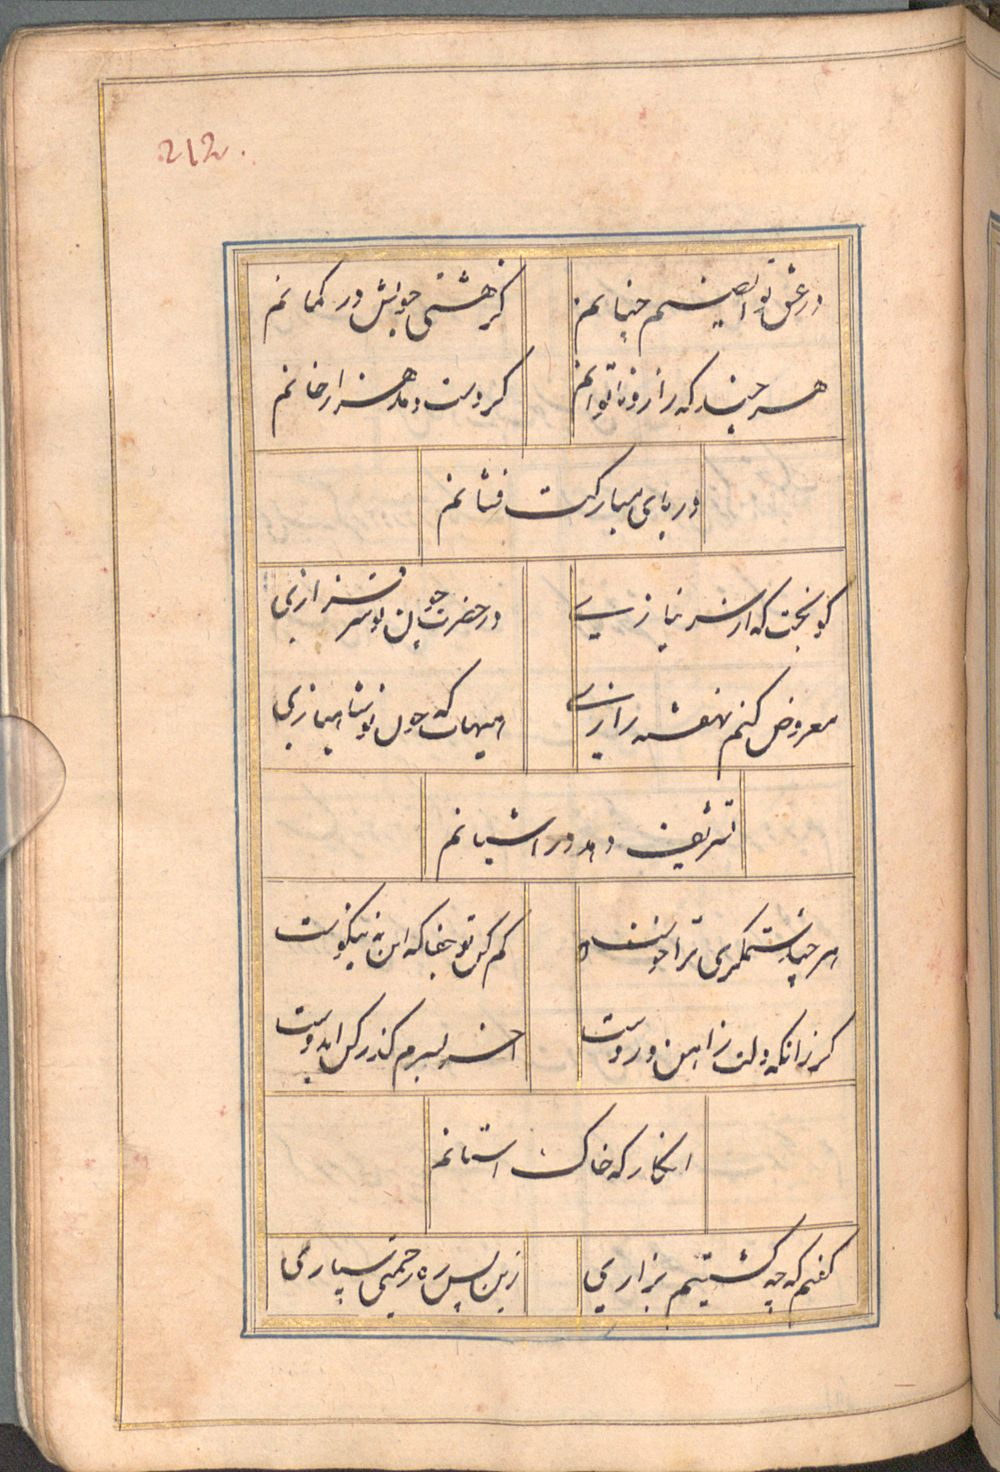 212.
در عشق تو ای صنم چنانم
کز هستی خویش در گمانم
هر چند که زار و ناتوانم
گر دست دهد هزار جانم
در پای مبارکت فشانم
کو بخت که از سر نیازی
در حضرت چون تو سرفرازی
معروض کنم نهفته رازی
هیهات که چون تو شاهبازی
تشریف دهد در آشیانم
هر چند ستمگری ترا خوست
کم کن تو جفا که این نه نیکوست
گر زانکه دلت ز آهن و روست
آخر بسرم گذر کن ای دوست
انگار که خاک آستانم
گفتم که چو کشتیم بزاری
زین پس ره رحمتی سپاری